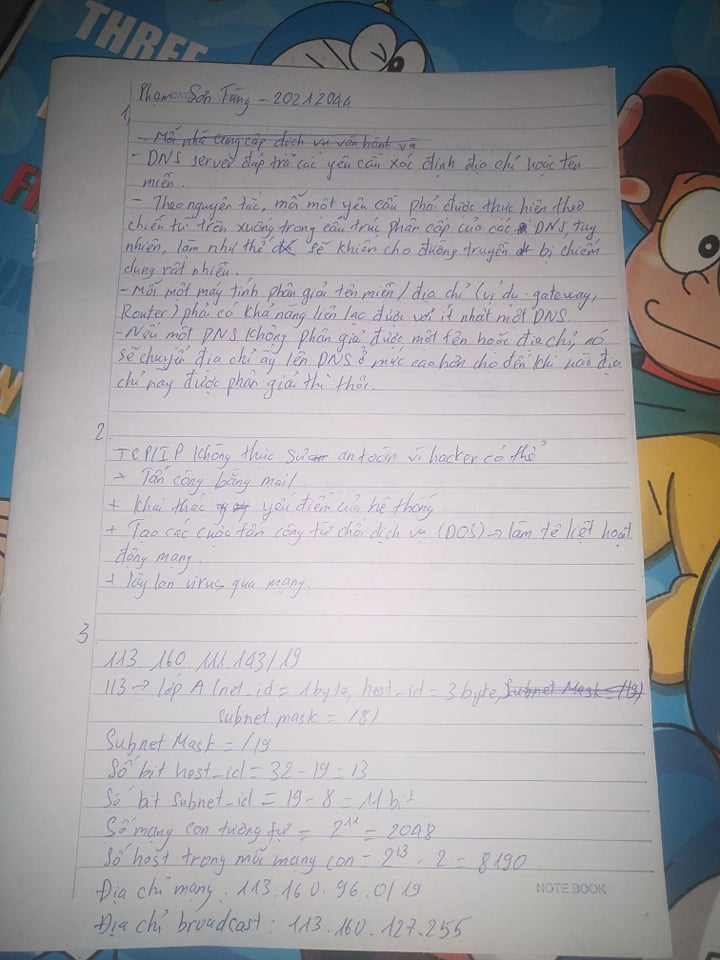 THREE
Phạm Sơn Tùng - 20212044
1,
- Mỗi nhà cung cấp dịch vụ vận hành và
- DNS server đáp trả các yêu cầu xác định địa chỉ hoặc tên
miền.
- Theo nguyên tắc, mỗi một yêu cầu phải được thực hiện theo
chiến từ trên xuống trong cấu trúc phân cấp của các DNS, tuy
nhiên, làm như thế sẽ khiến cho đường truyền bị chiếm
dụng rất nhiều.
- Mỗi một máy tính phân giải tên miền / địa chỉ (ví dụ: gateway,
Router) phải có khả năng liên lạc được với ít nhất một DNS.
- Nếu một DNS không phân giải được một tên hoặc địa chỉ, nó
sẽ chuyển địa chỉ ấy lên DNS ở mức cao hơn cho đến khi nào địa
chỉ này được phân giải thì thôi.
2.
TCP/IP không thực sự an toàn vì hacker có thể
+ Tấn công bằng mail
+ Khai thác yếu điểm của hệ thống
+ Tạo các cuộc tấn công từ chối dịch vụ (DOS) → làm tê liệt hoạt
động mạng.
+ Lây lan virus qua mạng.
3
113.160.111.143/19
113 → lớp A (net_id = 1byte, host_id = 3 byte, Subnet Mask = /19)
subnet mask = /8)
Subnet Mask = /19
Số bit host_id = 32 - 19 = 13
Số bit Subnet_id = 19 - 8 = 11 bit
Số mạng con tương tự = 2^11 = 2048
Số host trong mỗi mạng con = 2^13 - 2 = 8190
Địa chỉ mạng: 113.160.96.0/19
NOTE BOOK
Địa chỉ broadcast: 113.160.127.255